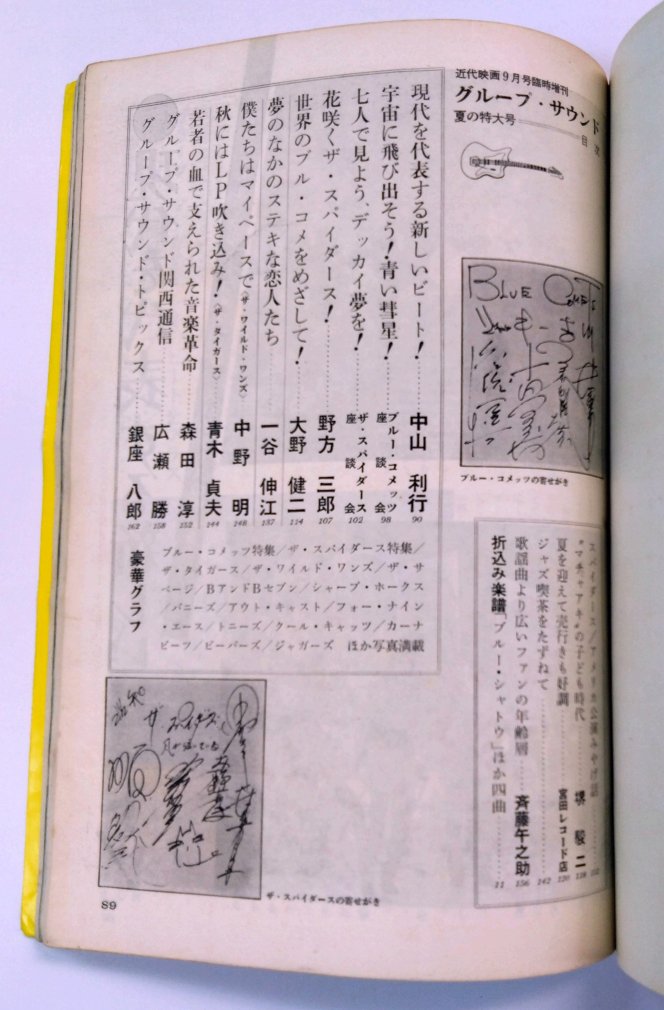 近代映画9月号臨時増刊
グループ・サウンド
夏の特大号
目次
現代を代表する新しいビート！ 中山 利行 90
宇宙に飛び出そう！青い彗星！ ブルー・コメッツ座談会 98
七人で見よう、デッカイ夢を！ ザ・スパイダース座談会 102
花咲くザ・スパイダース！ 野方 三郎 107
世界のブル・コメをめざして！ 大野 健二 114
夢のなかのステキな恋人たち 一谷 伸江 137
僕たちはマイペースで〈ザ・ワイルド・ワンズ〉 中野 明 148
秋にはLP吹き込み！〈ザ・タイガース〉 青木 貞夫 144
若者の血で支えられた音楽革命 森田 淳 152
グループ・サウンド関西通信 広瀬 勝 158
グループ・サウンド・トピックス 銀座 八郎 162
BLUE
ブルー・コメッツの寄せがき
スパイダース／アメリカ公演みやげ話
"マチャアキ"の子ども時代 堺 駿二 118
夏を迎えて売行きも好調 宮田レコード店 120
ジャズ喫茶をたずねて 142
歌謡曲より広いファンの年齢層 斉藤午之助 156
折込み楽譜「ブルー・シャトウ」ほか四曲 11
豪華グラフ
ブルー・コメッツ特集／ザ・スパイダース特集／
ザ・タイガース／ザ・ワイルド・ワンズ／ザ・サ
ベージ／BアンドBセブン／シャープ・ホークス
／バニーズ／アウト・キャスト／フォー・ナイン
・エース／トニーズ／クール・キャッツ／カーナ
ビーツ／ビーバーズ／ジャガーズ ほか写真満載
ザ・スパイダース
ザ・スパイダースの寄せがき
89